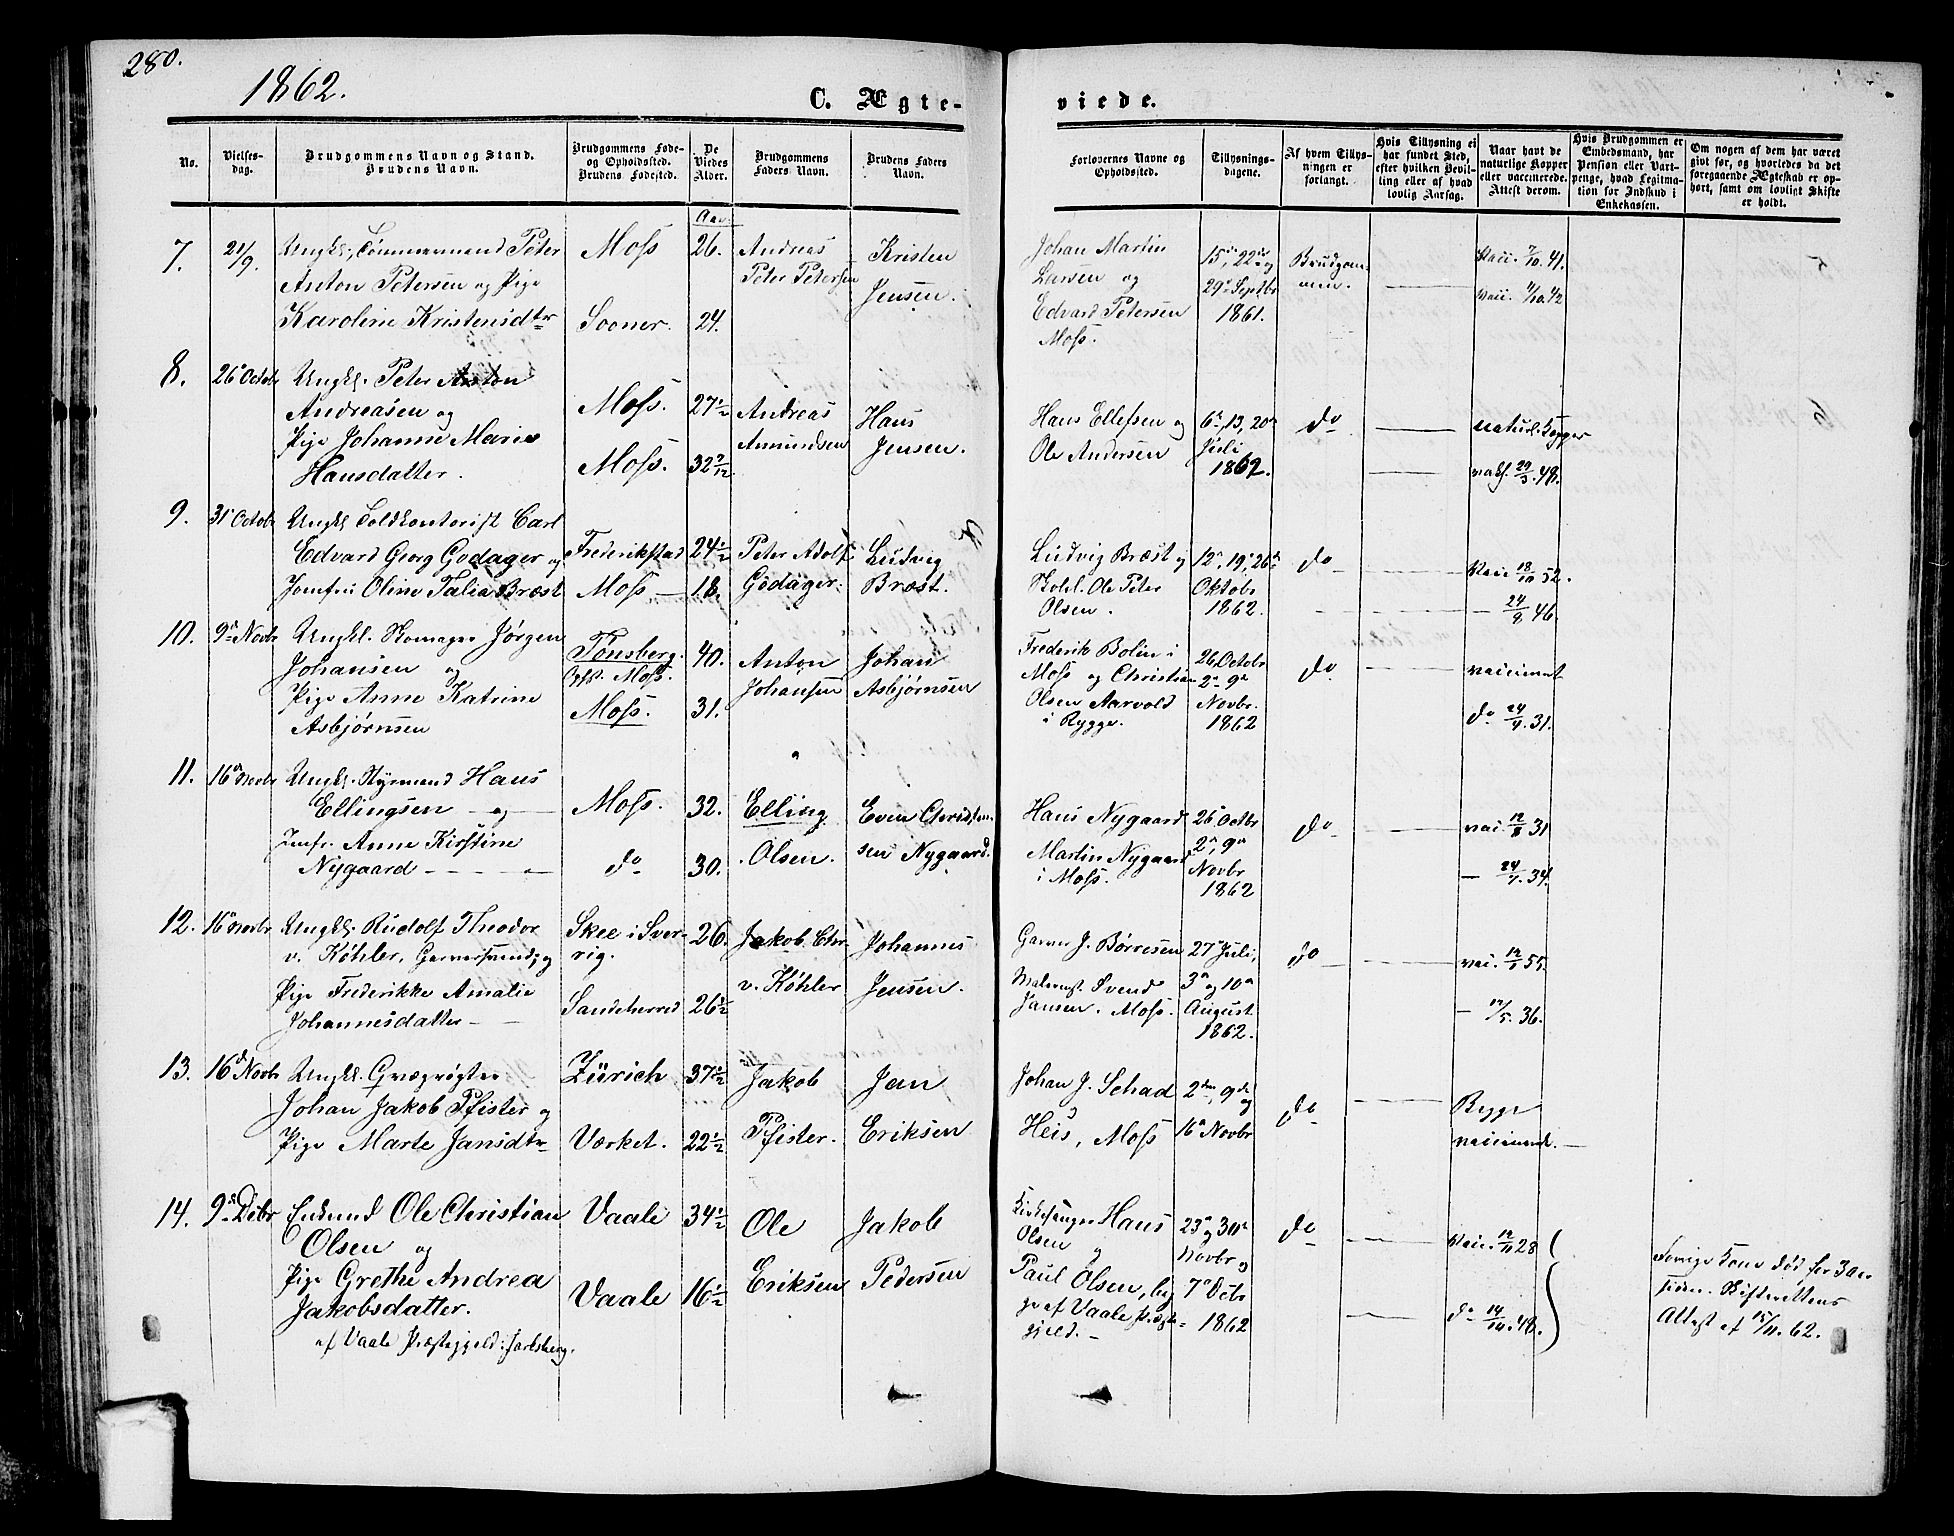 280.
1862.
C. Ægte-
viede.
No.
Vielses-
dag.
Brudgommens Navn og Stand.
Brudens Navn.
Brudgommens Føde-
og Opholdssted.
Brudens Fødested.
De
Viedes
Alder.
Brudgommens
Faders Navn.
Brudens Faders
Navn.
Forlovernes Navne og
Opholdssted.
Tillysnings-
dagene.
Af hvem Tillys-
ningen er
forlangt.
Hvis Tillysning ei
har fundet Sted,
efter hvilken Bevil-
ling eller af hvad
lovlig Aarsag.
Naar havt de
naturlige Kopper
eller vaccinerede.
Attest derom.
Hvis Brudgommen er
Embedsmand, har
Pension eller Vart-
penge, hvad Legitima-
tion for Indskud i
Enkekassen.
Om nogen af dem har været
gift før, og hvorledes da det
foregaaende Ægteskab er op-
hørt, samt om lovligt Skifte
er holdt.
Aar.
7.
21/9.
Ungkl. Tømmermand Peter
Anton Petersen og Pige
Karoline Kristensdtr
Moss
Sooner.
26.
24.
Andreas
Peter Petersen
Kristen
Jensen.
Johan Martin
Larsen og
Edvard Petersen
Moss.
15de, 22de og
29de Septbr
1861.
Brudgom-
men.
vacc. 7/10. 41.
vacc. 4/10. 42
8.
26de Octobr
Ungkl. Peter Anton
Andreasen og
Pige Johanne Marie
Hansdatter.
Moss.
Moss.
27 1/2
32 7/12
Andreas
Amundsen
Hans
Jensen.
Hans Ellefsen og
Ole Andersen
6te, 13, 20de
Juli
1862.
do
naturl. Kopper
vaks. 29/3. 48.
9.
31te Octobr
Ungkl. Toldkontorist Carl
Edvard Georg Godager og
Jomfru Oline Talia Bræst
Frederikstad
Moss
24 1/2
18.
Peter Adolf
Godager.
Ludvig
Bræst.
Ludvig Bræst og
Skohl. Ole Peter
Olsen.
12te, 19de, 26de
Oktobr
1862.
do
vacc. 18/10 52.
24/8. 46.
10.
9de Novbr
Ungkl. Skomager Jørgen
Johansen og
Pige Anne Katrine
Asbjørnsen
Tønsberg.
Oph. Moss.
Moss.
40.
31.
Anton
Johansen
Johan
Asbjørnsen
Frederik Bolin i
Moss og Christian
Olsen Aarvold
i Rygge.
26 Octobr
2de 9de
Novbr.
1862
do
vaccineret
do 24/9. 31.
11.
16de Novbr
Ungkl. Styrmand Hans
Ellingsen og
Jomfr. Anne Kirstine
Nygaard
Moss.
do
32.
30.
Elling
Olsen.
Even Christen-
sen Nygaard.
Hans Nygaard
Martin Nygaard
i Moss.
26de Octbr
2de, 9de
Novbr
1862
do
vac. 12/8 31
24/7. 34.
12.
16de Novbr
Ungkl. Rudolf Theodor
v. Köhler, Garversvend og
Pige Frederikke Amalie
Johannesdatter
Skee i Sver-
rig.
Sandeherred
26.
26 1/2
Jakob Chr.
v. Köhler
Johannes
Jensen.
Garver J. Børresen
Malermst. Svend
Jansen. Moss.
27de Juli,
3de og 10de
August
1862.
do
vac. 12/1 55.
17/5. 36.
13.
16de Novbr
Ungkl. Græsrøgter
Johan Jakob Pfister og
Pige Marte Jansdtr
Zürich
Værket.
37 1/2
22 1/2
Jakob
Pfister.
Jan
Eriksen
Johan J. Schad
Heis, Moss
2den, 9de og
16de Novbr
do
Begge
vaccinerede.
14.
9de Debr
Enkmd Ole Christian
Olsen og
Pige Grethe Andrea
Jakobsdatter.
af Vaale Præstegjeld: Jarlsberg.
Vaale
Vaale
34 1/2
16 1/2
Ole
Eriksen
Jakob
Pedersen
Kirkesanger Hans
Olsen og
Paul Olsen, beg-
ge af Vaale Præste-
gjeld.
23de og 30de
Novbr og
7de Debr
1862
do
vacc. 12/11 28
do 14/10. 48.
Forrige Kone død for 3 Aar
siden. Skifterettens
Attest af 15/11. 62.